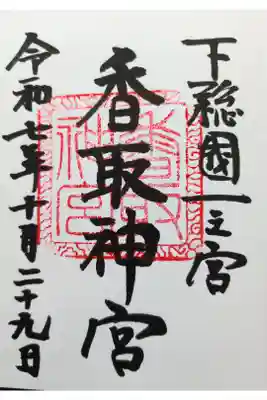 下総國一之宮
香取神宮
令和七年十月二十九日